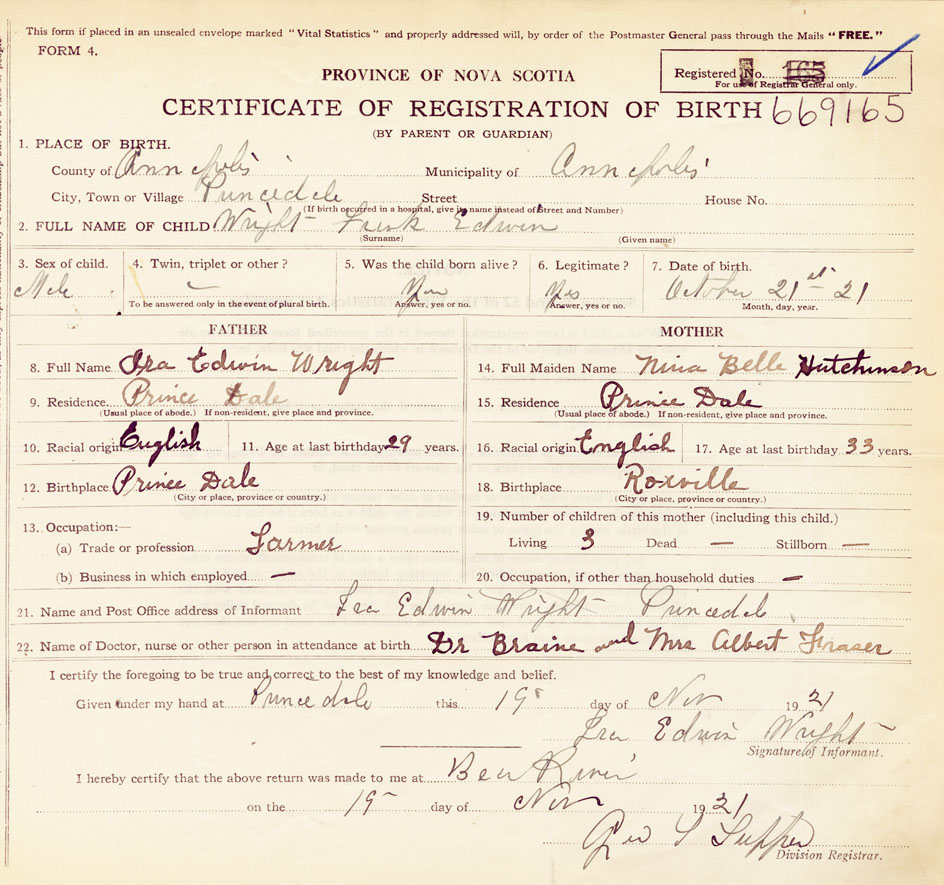 This form if placed in an unsealed envelope marked "Vital Statistics" and properly addressed will, by order of the Postmaster General pass through the Mails "FREE."
FORM 4.
Registered No. 165
For use of Registrar General only.
PROVINCE OF NOVA SCOTIA
CERTIFICATE OF REGISTRATION OF BIRTH 669165
(BY PARENT OR GUARDIAN)
1. PLACE OF BIRTH.
County of Annapolis Municipality of Annapolis
City, Town or Village Princedale Street House No.
(If birth occurred in a hospital, give its name instead of Street and Number)
2. FULL NAME OF CHILD Wright Frank Edwin
(Surname) (Given name)
3. Sex of child. 4. Twin, triplet or other? 5. Was the child born alive? 6. Legitimate? 7. Date of birth.
Male — Yes Yes October 21st 21
To be answered only in the event of plural birth. Answer, yes or no. Answer, yes or no. Month, day, year.
FATHER MOTHER
8. Full Name Ira Edwin Wright 14. Full Maiden Name Nina Belle Hutchinson
9. Residence Prince Dale 15. Residence Prince Dale
(Usual place of abode.) If non-resident, give place and province. (Usual place of abode.) If non-resident, give place and province.
10. Racial origin English 11. Age at last birthday 29 years. 16. Racial origin English 17. Age at last birthday 33 years.
12. Birthplace Prince Dale 18. Birthplace Roxville
(City or place, province or country.) (City or place, province or country.)
13. Occupation:— 19. Number of children of this mother (including this child.)
(a) Trade or profession Farmer Living 3 Dead — Stillborn —
(b) Business in which employed — 20. Occupation, if other than household duties —
21. Name and Post Office address of Informant Ira Edwin Wright Princedale
22. Name of Doctor, nurse or other person in attendance at birth Dr Braine and Mrs Albert Fraser
I certify the foregoing to be true and correct to the best of my knowledge and belief.
Given under my hand at Princedale this 19 day of Nov 1921
Ira Edwin Wright
Signature of Informant.
I hereby certify that the above return was made to me at Bear River
on the 19 day of Nov 1921
Geo S
Division Registrar.